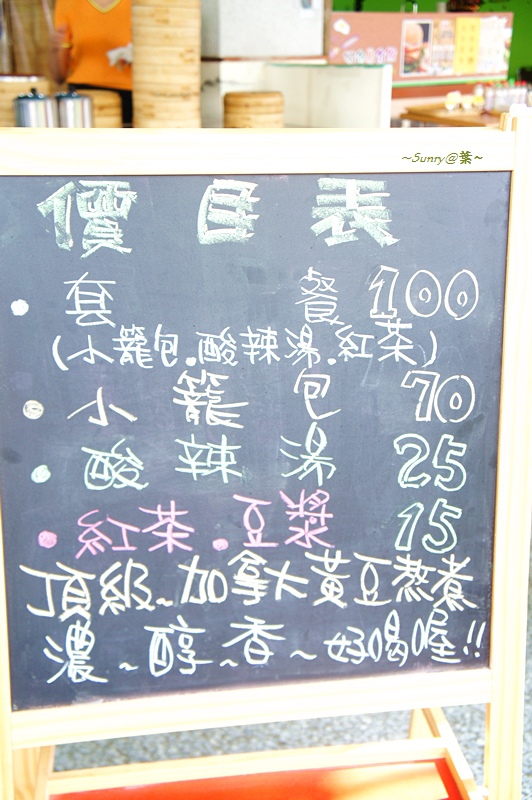 ~Sunry@葉~
價目表
套餐 100
(小籠包.酸辣湯.紅茶)
小籠包 70
酸辣湯 25
紅茶.豆漿 15
頂級~加拿大黃豆熬煮
濃~醇~香~好喝喔!!